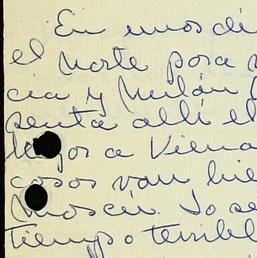 En unos di
el Norte para v
cia y Milán (
senta allí el
lejos a Viena
cosas van bie
Moscú. Yo se
tiempo terribl